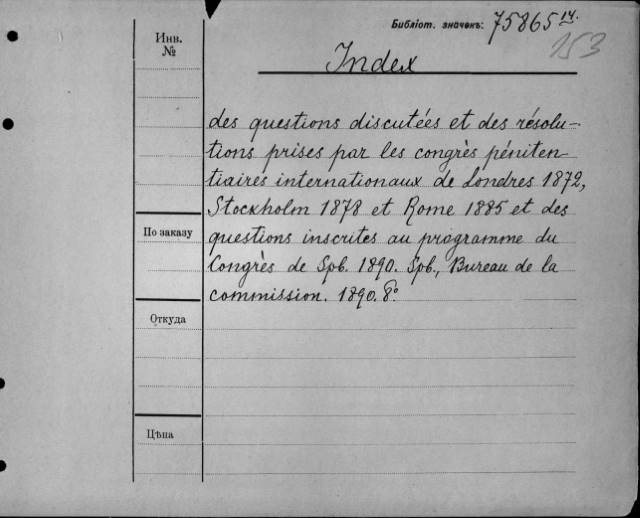 Библіот. значекъ: 75865 14.
153
Инв.
№
Index
des questions discutées et des résolu-
tions prises par les congrès péniten-
tiaires internationaux de Londres 1872,
Stockholm 1878 et Rome 1885 et des
По заказу
questions inscrites au programme du
Congrès de Spb. 1890. Spb., Bureau de la
commission. 1890. 8º.
Откуда
Цѣна